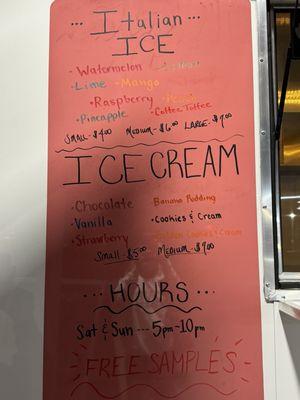 ... Italian ...
ICE
· Watermelon
· Lime · Mango
· Raspberry
· Pineapple · Coffee Toffee
SMALL - $4.00 MEDIUM - $6.00 LARGE - $7.00
ICE CREAM
· Chocolate Banana Pudding
· Vanilla · Cookies & Cream
· Strawberry Golden Cookies & Cream
SMALL - $5.00 MEDIUM - $7.00
... HOURS ...
Sat & Sun --- 5pm-10pm
FREE SAMPLES